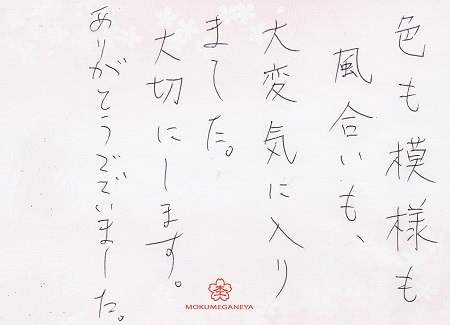 色も模様も
風合いも、
大変気に入り
ました。
大切にします。
ありがとうございました。
MOKUMEGANEYA